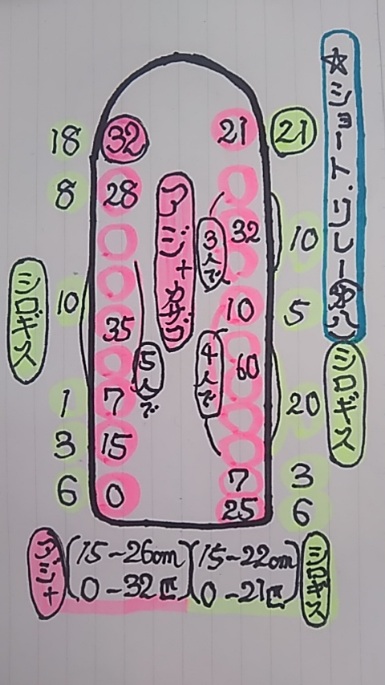 ☆ショート・リレー釣八
18 32 21 21
8 28
3人で 32 10
アジ+カサゴ
シロギス
10 35 5人で
10 5
4人で 60 20
シロギス
1 7
3 15
7 3
6 0
25 6
アジ+ (15-26cm 0-32匹)
(15-22cm 0-21匹) シロギス